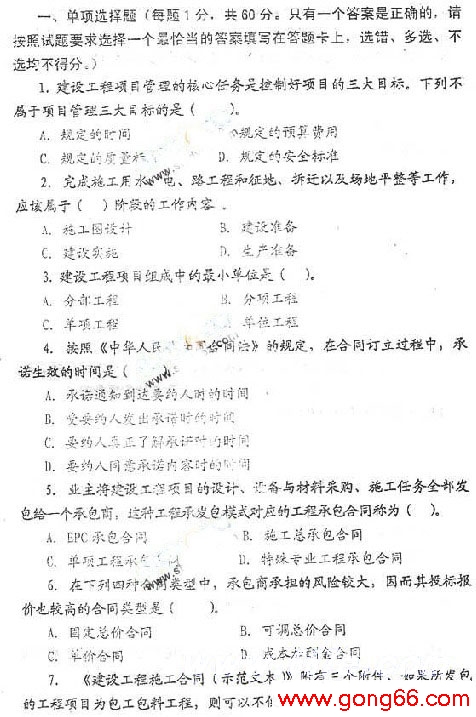 一、单项选择题（每题1分，共60分。只有一个答案是正确的，请
按照试题要求选择一个最恰当的答案填写在答题卡上，选错、多选、不
选均不得分。）
1. 建设工程项目管理的核心任务是控制好项目的三大目标。下列不
属于项目管理三大目标的是（　）。
A. 规定的时间　规定的预算费用
C. 规定的质量标　D. 规定的安全标准
2. 完成施工用水　电、路工程和征地、拆迁以及场地平整等工作，
应该属于（　）阶段的工作内容。
A. 施工图设计　B. 建设准备
C. 建设实施　D. 生产准备
3. 建设工程项目组成中的最小单位是（　）。
A. 分部工程　B. 分项工程
C. 单项工程　单位工程
4. 按照《中华人民　合同法》的规定，在合同订立过程中，承
诺生效的时间是（
A. 承诺通知到达要约人时的时间
B. 受要约人发出承诺时的时间
C. 要约人真正了解承诺时的时间
D. 要约人同意承诺内容时的时间
5. 业主将建设工程项目的设计、设备与材料采购、施工任务全部发
包给一个承包商，这种工程承发包模式对应的工程承包合同称为（　）。
A. EPC承包合同　B. 施工总承包合同
C. 单项工程承包合同　D. 特殊专业工程承包合同
6. 在下列四种合同类型中，承包商承担的风险较大，因而其投标报
价也较高的合同类型是（　）.
A. 固定总价合同　B. 可调总价合同
C. 单价合同　D. 成本加酬金合同
7. 《建设工程施工合同（示范文本）》附有三个附件，如果所发包
的工程项目为包工包料工程，则可以不
www.gong66.com